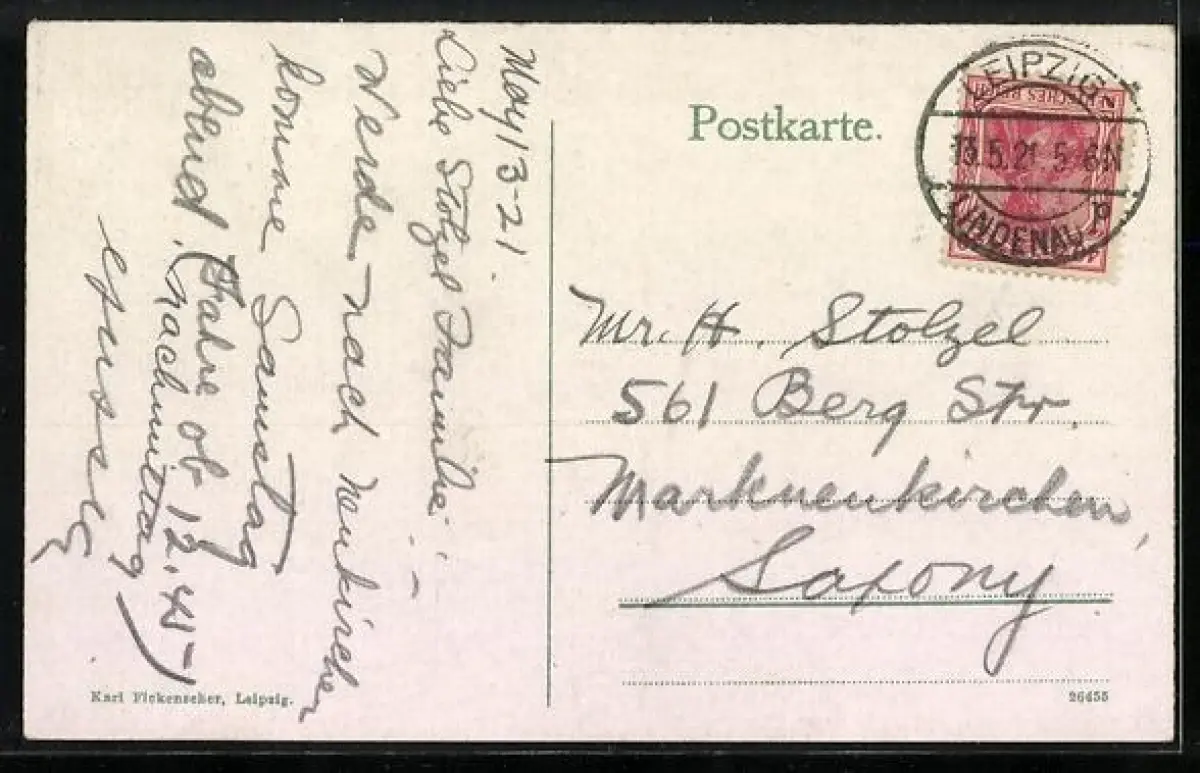 May 13-21.
Liebe Stolzel Familie! –
Werde nach Neukirchen
komme Samstag
abend. (Fahre ob 12.45 –
nachmittag)
Postkarte.
LEIPZIG-
13.5.21 5-6N
LINDENAU
p
DEUTSCHES REICH
Mr. H. Stolzel
561 Berg Str.
Markneukirchen,
Saxony.
Karl Fickenscher, Leipzig.
26455